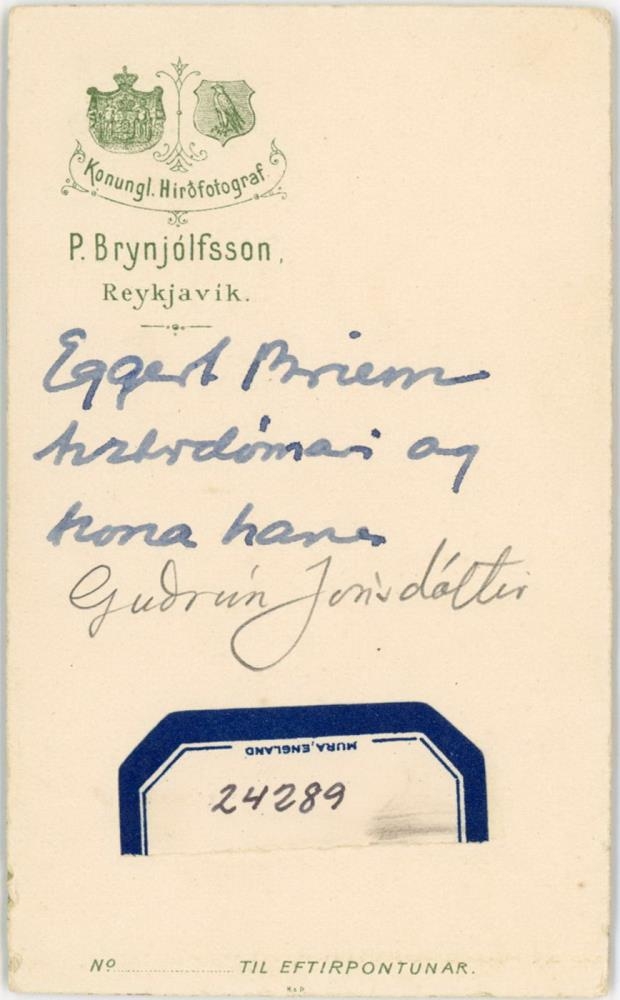 Konungl. Hirðfotograf.
P. Brynjólfsson,
Reykjavík.
Eggert Briem
hæstirdómari og
kona hans
Guðrún Jónsdóttir
MURA, ENGLAND
24289
Nº TIL EFTIRPONTUNAR.
K & P